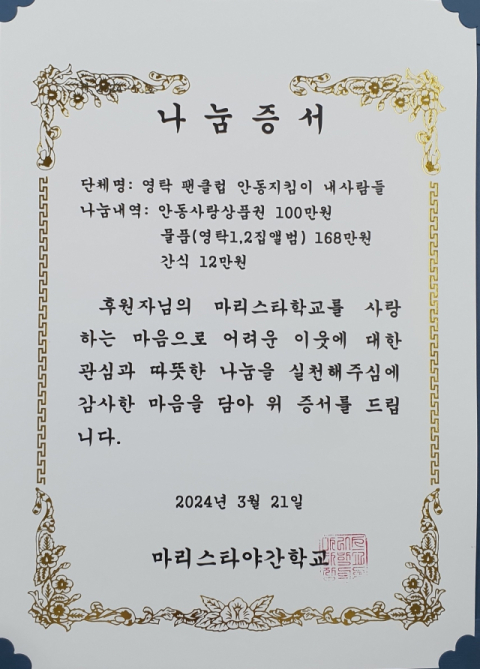 나눔증서
단체명: 영탁 팬클럽 안동지킴이 내사람들
나눔내역: 안동사랑상품권 100만원
물품(영탁1,2집앨범) 168만원
간식 12만원
후원자님의 마리스타학교를 사랑
하는 마음으로 어려운 이웃에 대한
관심과 따뜻한 나눔을 실천해주심에
감사한 마음을 담아 위 증서를 드립
니다.
2024년 3월 21일
마리스타야간학교